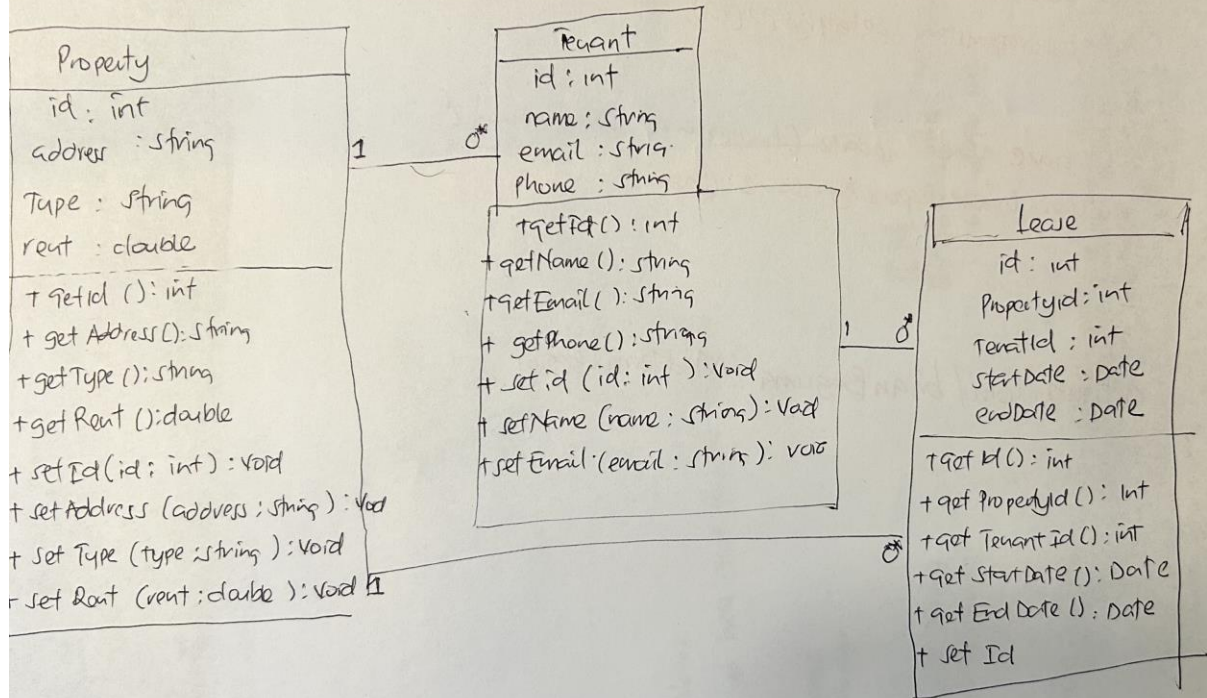 Property
id : int
address : string
Type : string
rent : double
+ getId () : int
+ get Address() : string
+ getType () : string
+ get Rent () : double
+ setId (id : int) : void
+ set Address (address : string) : void
+ set Type (type : string ) : void
- set Rent (rent : double ) : void
1
0*
1
Tenant
id : int
name : string
email : string
phone : string
+getId() : int
+ getName () : string
+getEmail( ) : string
+ getPhone() : string
+ set id (id : int ) : void
+ setName (name : string) : void
+ setEmail (email : string) : void
1
0*
0*
Lease
id : int
Propertyid : int
TenatId : int
startDate : Date
endDate : Date
+get Id() : int
+get PropertyId() : Int
+get Tenant Id() : int
+get StartDate () : Date
+ get End Date () : Date
+ set Id